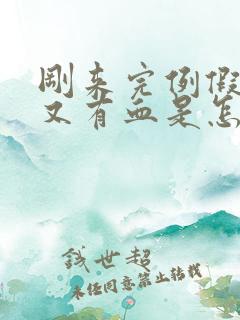 刚来完例假
又有血是怎
钱世超
未经同意禁止转载